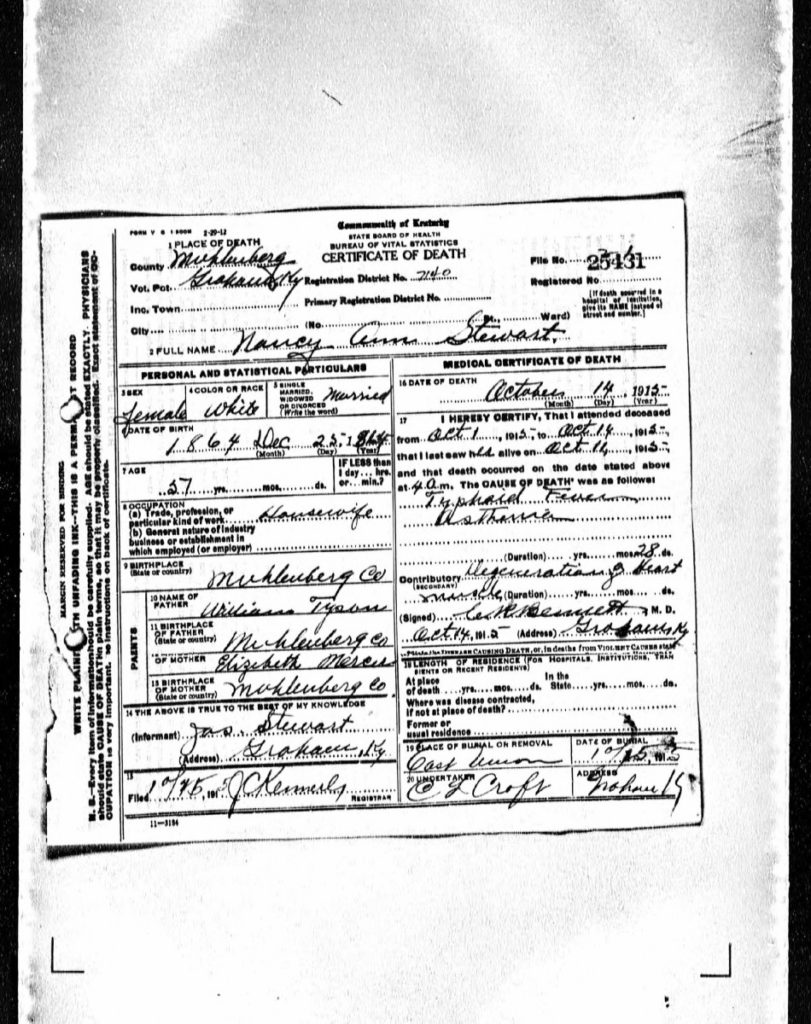 FORM V S 1 500M 2-29-12
Commonwealth of Kentucky
STATE BOARD OF HEALTH
BUREAU OF VITAL STATISTICS
CERTIFICATE OF DEATH
1 PLACE OF DEATH
County Muhlenberg
Vot. Pct. Graham, Ky Registration District No. 7140
Inc. Town Primary Registration District No.
City (No. St., Ward)
File No. 25431
Registered No.
(If death occurred in a hospital or institution, give its NAME instead of street and number.)
2 FULL NAME Nancy Ann Stewart
PERSONAL AND STATISTICAL PARTICULARS
3 SEX Female
4 COLOR OR RACE White
5 SINGLE MARRIED, WIDOWED OR DIVORCED (Write the word) Married
6 DATE OF BIRTH
1864 Dec 25 1864
(Month) (Day) (Year)
7 AGE
57 yrs. mos. ds.
IF LESS than 1 day... hrs. or... min.?
8 OCCUPATION
(a) Trade, profession, or particular kind of work Housewife
(b) General nature of industry business or establishment in which employed (or employer)
9 BIRTHPLACE (State or country) Muhlenberg Co
PARENTS
10 NAME OF FATHER William Tyson
11 BIRTHPLACE OF FATHER (State or country) Muhlenberg Co
12 OF MOTHER Elizibeth Mercer
13 BIRTHPLACE OF MOTHER (State or country) Muhlenberg Co
14 THE ABOVE IS TRUE TO THE BEST OF MY KNOWLEDGE
(Informant) Jas. Stewart
(Address) Graham, Ky
15
Filed 191 REGISTRAR
11—3184
MEDICAL CERTIFICATE OF DEATH
16 DATE OF DEATH October 14, 1915
(Month) (Day) (Year)
17 I HEREBY CERTIFY, That I attended deceased
from Oct 1, 1915, to Oct 14, 1915,
that I last saw her alive on Oct 11, 1915,
and that death occurred on the date stated above
at 4 a m. The CAUSE OF DEATH* was as follows:
Typhoid Fever
Asthma
(Duration) yrs. mos. 28 ds.
Contributory (SECONDARY) Degeneration of Heart
muscle (Duration) yrs. mos. ds.
(Signed) Bennett M. D.
Oct 14, 1915 (Address) Graham Ky
*State the DISEASE CAUSING DEATH, or, in deaths from VIOLENT CAUSES state
18 LENGTH OF RESIDENCE (FOR HOSPITALS, INSTITUTIONS, TRANSIENTS OR RECENT RESIDENTS)
At place of death yrs. mos. ds. In the State yrs. mos. ds.
Where was disease contracted, if not at place of death?
Former or usual residence
19 PLACE OF BURIAL OR REMOVAL East Union
DATE OF BURIAL 191
20 UNDERTAKER C L Croft
ADDRESS Graham Ky
MARGIN RESERVED FOR BINDING
WRITE PLAIN TH UNFADING INK—THIS IS A PERMA T RECORD
N. B.—Every item of information should be carefully supplied. AGE should be stated EXACTLY. PHYSICIANS
should state CAUSE OF DEATH in plain terms, so that it may be properly classified. Exact statement of OC-
CUPATION is very important. instructions on back of certificate.